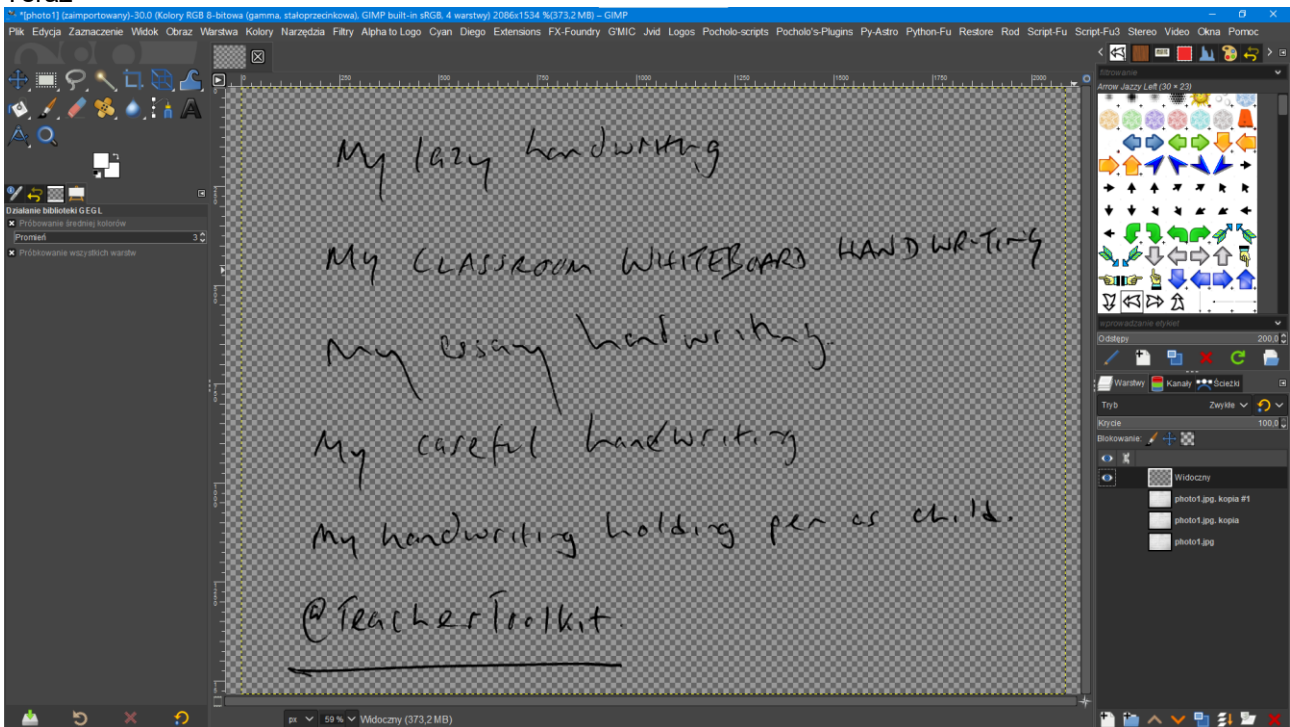 Teraz
*[photo1] (zaimportowany)-30.0 (Kolory RGB 8-bitowa (gamma, stałoprzecinkowa), GIMP built-in sRGB, 4 warstwy) 2086x1534 %(373,2 MB) – GIMP
Plik Edycja Zaznaczenie Widok Obraz Warstwa Kolory Narzędzia Filtry Alpha to Logo Cyan Diego Extensions FX-Foundry G'MIC Jvid Logos Pocholo-scripts Pocholo's-Plugins Py-Astro Python-Fu Restore Rod Script-Fu Script-Fu3 Stereo Video Okna Pomoc
Działanie biblioteki GEGL
Próbowanie średniej kolorów
Promień 3
Próbkowanie wszystkich warstw
My lazy handwriting
My CLASSROOM WHITEBOARD HANDWRITING
My essay handwriting.
My careful handwriting
My handwriting holding pen as child.
@TeacherToolkit.
px 59 % Widoczny (373,2 MB)
filtrowanie
Arrow Jazzy Left (30 × 23)
wprowadzanie etykiet
Odstępy 200,0
Warstwy Kanały Ścieżki
Tryb Zwykłe
Krycie 100,0
Blokowanie:
Widoczny
photo1.jpg. kopia #1
photo1.jpg. kopia
photo1.jpg